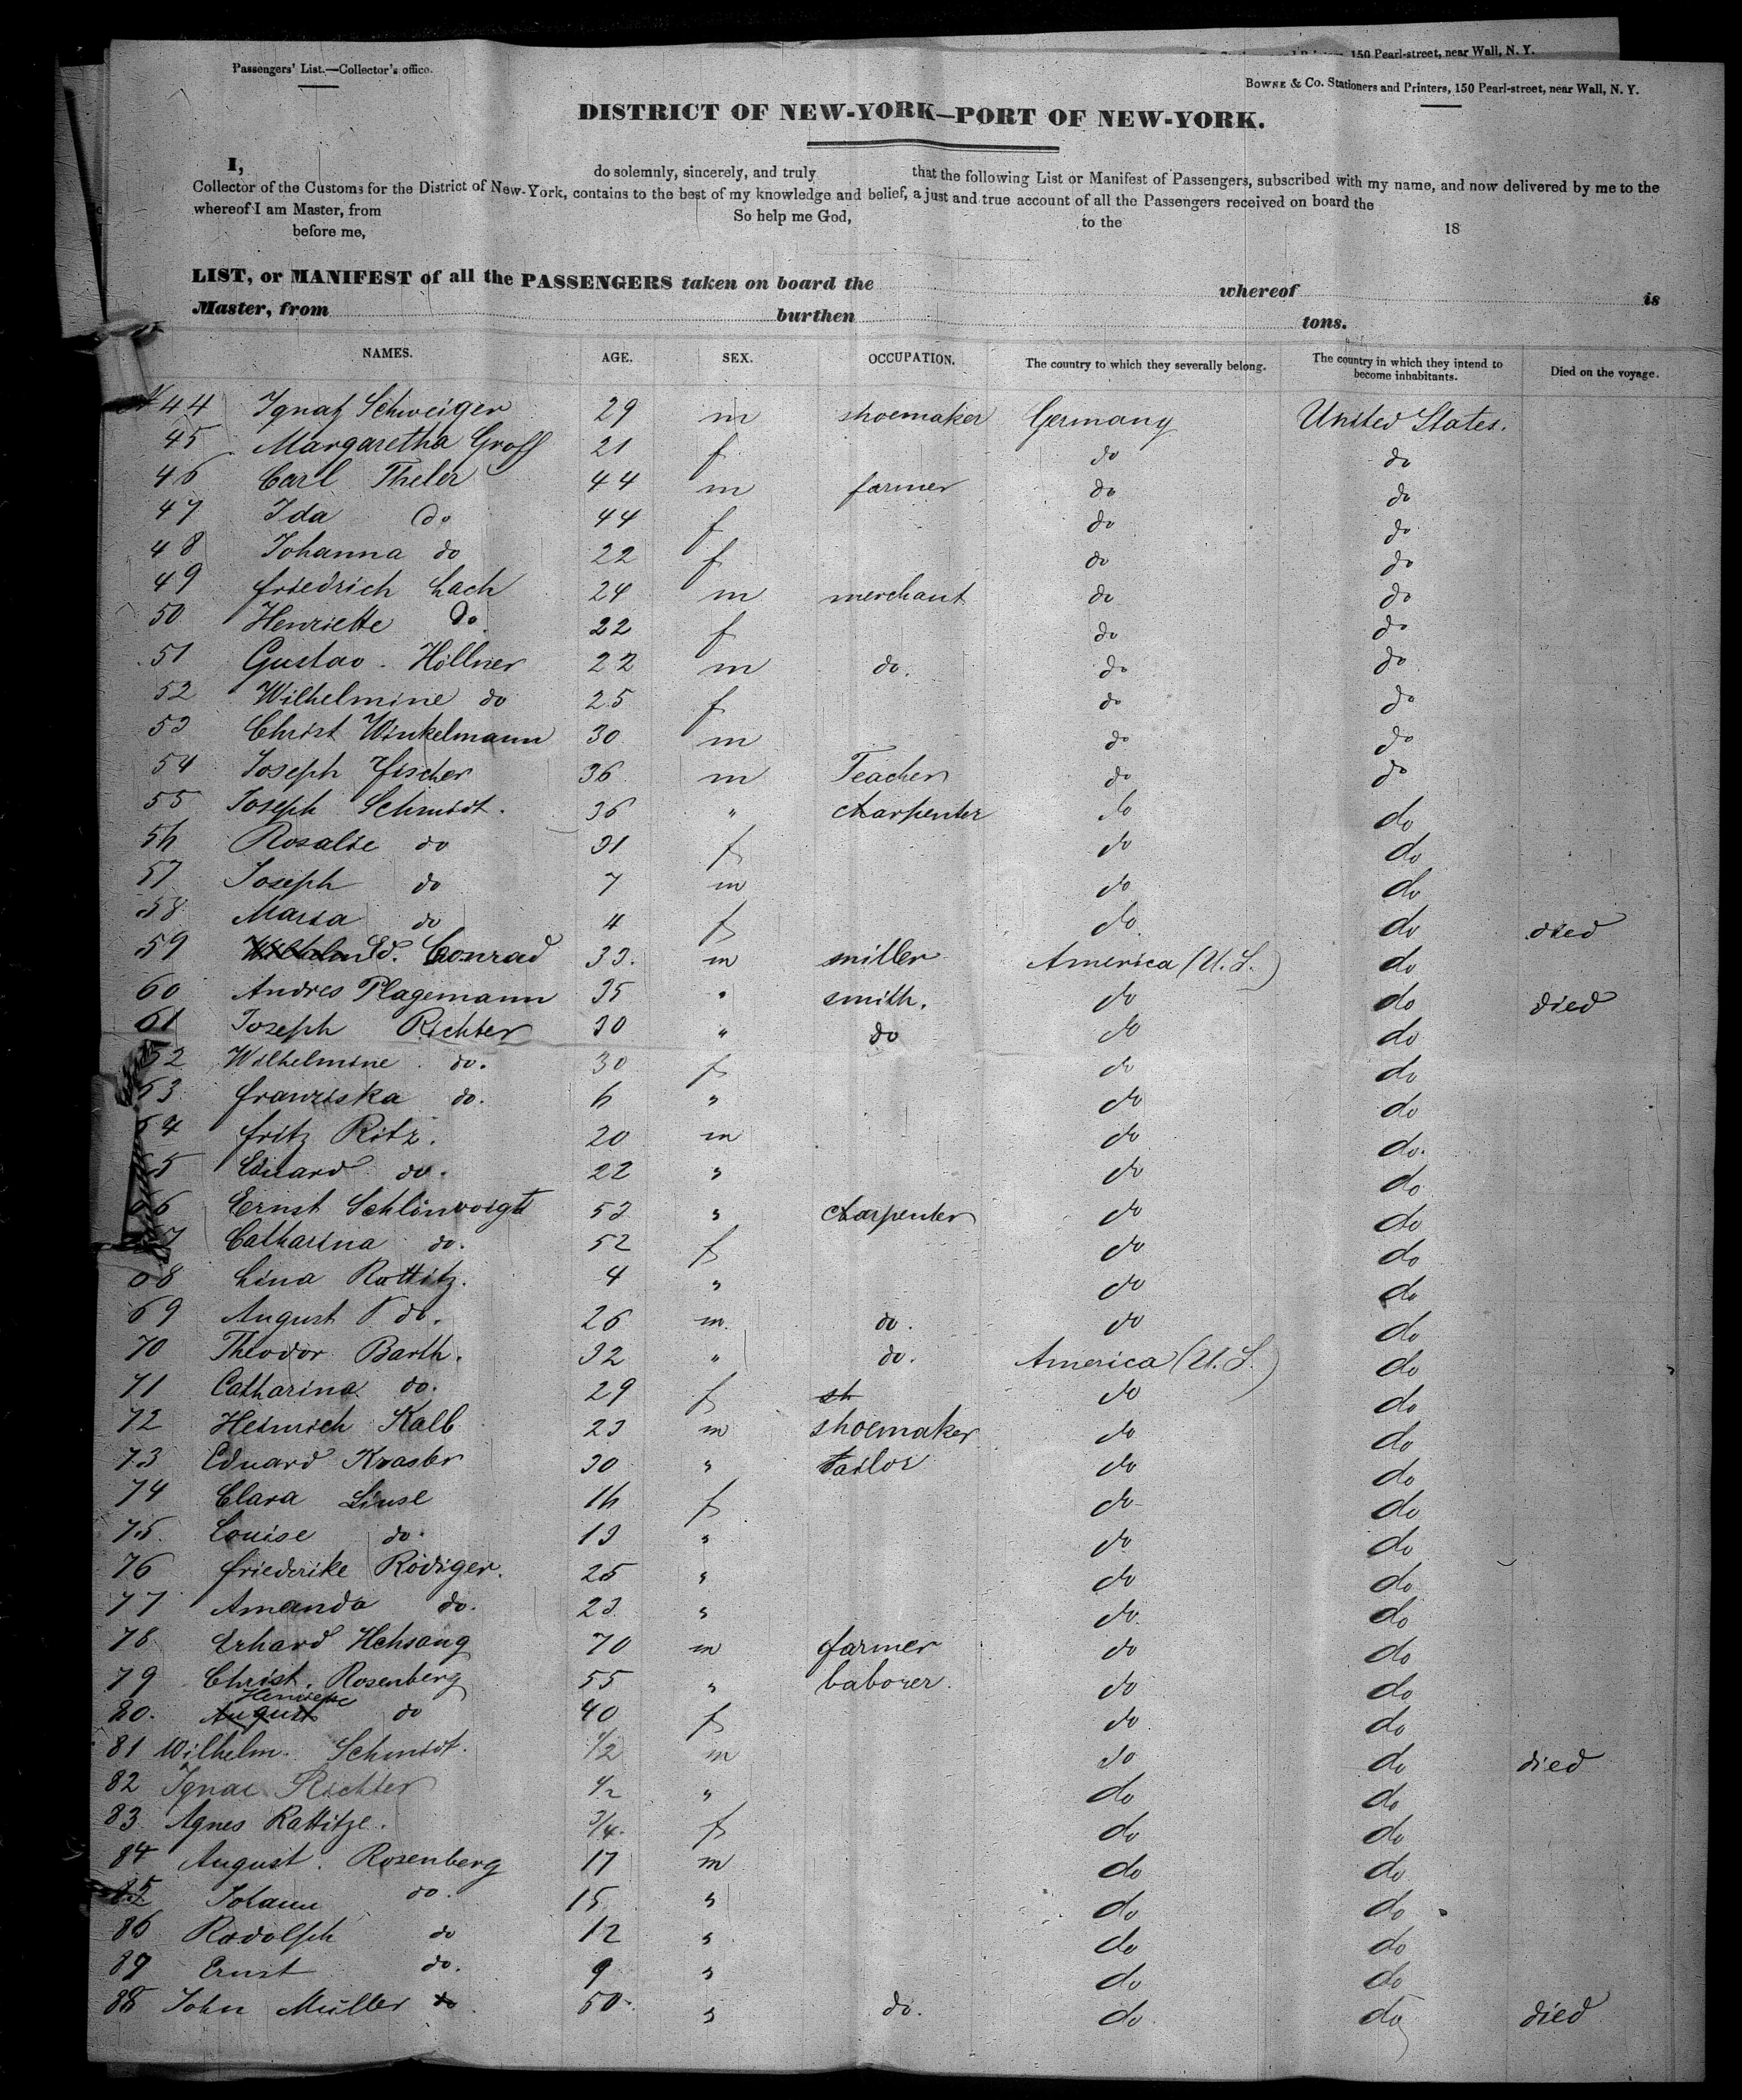 150 Pearl-street, near Wall, N. Y.
Passengers' List.—Collector's office.
Bowne & Co. Stationers and Printers, 150 Pearl-street, near Wall, N. Y.
DISTRICT OF NEW-YORK—PORT OF NEW-YORK.
I, do solemnly, sincerely, and truly that the following List or Manifest of Passengers, subscribed with my name, and now delivered by me to the
Collector of the Customs for the District of New-York, contains to the best of my knowledge and belief, a just and true account of all the Passengers received on board the
whereof I am Master, from So help me God, to the 18
before me,
LIST, or MANIFEST of all the PASSENGERS taken on board the whereof is
Master, from burthen tons.
NAMES. AGE. SEX. OCCUPATION. The country to which they severally belong. The country in which they intend to become inhabitants. Died on the voyage.
44 Ignaz Schweiger 29 m shoemaker Germany United States.
45 Margaretha Groff 21 f do do
46 Carl Theler 44 m farmer do do
47 Ida do 44 f do do
48 Johanna do 22 f do do
49 friedrich Lach 24 m merchant do do
50 Henriette do. 22 f do do
51 Gustav Höllner 22 m do. do do
52 Wilhelmine do 25 f do do
53 Christ Winkelmann 30 m do do
54 Joseph fischer 36 m Teacher do do
55 Joseph Schmidt. 36 " Charpenter do do
56 Rosalie do 31 f do do
57 Joseph do 7 m do do
58 Maria do 4 f do. do died
59 Ed. Conrad 33. m miller America (U. S.) do
60 Andres Plagemann 35 " smith. do do died
61 Joseph Richter 30 " do do do
62 Wilhelmine do. 30 f do do
63 franziska do. 6 " do do
64 fritz Ritz. 20 m do do.
65 Eduard do. 22 " do do
66 Ernst Schlönvoigt 53 " Charpenter do do
67 Catharina do. 52 f do do
68 Lina Rottitz. 4 " do do
69 August do. 26 m. do. do do
70 Theodor Barth. 32 " do. America (U. S.) do
71 Catharina do. 29 f sh do do
72 Heinrich Kalb 23 m shoemaker do do
73 Eduard 30 " Tailor do do
74 Clara Linse 16 f do do
75. Louise do. 13 " do do
76 friederike Rödiger. 25 " do do
77 Amanda do. 23 " do. do
78 Erhard Hehsang 70 m farmer do do
79 Christ. Rosenberg 55 " laborer. do do
80. August Henriette do 40 f do do
81 Wilhelm. Schmidt. 1/2 m do do died
82 Ignac Richter 1/2 " do do
83 Agnes Rattitze. 3/4. f do do
84 August. Rosenberg 17 m do do
85 Johann do. 15 " do do
86 Rodolph do 12 " do do
87 Ernst do. 9 " do do
88 John Müller do 50. " do. do do died